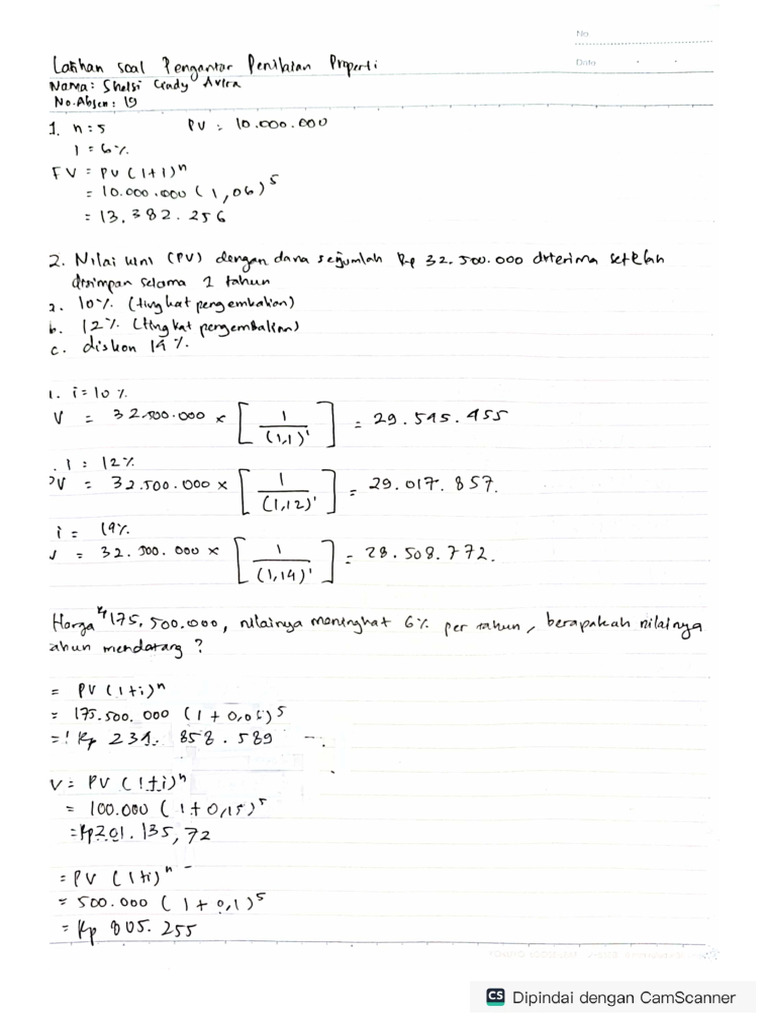 No.
Date
Latihan soal Pengantar Penilaian Properti
Nama: Shelsi Cindy Avira
No.Absen: 19
1. n = 5 PV = 10.000.000
i = 6%
FV = PV (1+i)^n
= 10.000.000 (1,06)^5
= 13.382.256
2. Nilai kini (PV) dengan dana sejumlah Rp 32.500.000 diterima setelah
disimpan selama 1 tahun
a. 10% (tingkat pengembalian)
b. 12% (tingkat pengembalian)
c. diskon 14%.
1. i = 10%
V = 32.500.000 × [ 1 / (1,1)^1 ] = 29.545.455
. i = 12%
PV = 32.500.000 × [ 1 / (1,12)^1 ] = 29.017.857.
i = 14%
V = 32.500.000 × [ 1 / (1,14)^1 ] = 28.508.772.
Harga Rp 175.500.000, nilainya meningkat 6% per tahun, berapakah nilainya
ahun mendatang?
= PV (1+i)^n
= 175.500.000 (1 + 0,06)^5
= Rp 234.858.589
V = PV (1+i)^n
= 100.000 (1 + 0,15)^5
= Rp 201.135,72
= PV (1+i)^n
= 500.000 (1 + 0,1)^5
= Rp 805.255
CS Dipindai dengan CamScanner